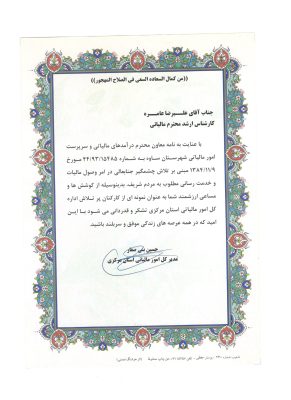 ((من کمال السعاده السعی فی الصلاح الجمهور))
جناب آقای علیرضا عامره
کارشناس ارشد محترم مالیاتی
با عنایت به نامه معاون محترم درآمدهای مالیاتی و سرپرست
امور مالیاتی شهرستان ساوه به شماره ۲۴/۹۳/۱۵۴۸۵ مورخ
۱۳۸۴/۱۱/۹ مبنی بر تلاش چشمگیر جنابعالی در امر وصول مالیات
و خدمت رسانی مطلوب به مردم شریف، بدینوسیله از کوشش ها و
مساعی ارزشمند شما به عنوان نمونه ای از کارکنان پر تلاش اداره
کل امور مالیاتی استان مرکزی تشکر و قدردانی می شود با این
امید که در همه عرصه های زندگی موفق و سربلند باشید.
حسین نقی صفار
مدیر کل امور مالیاتی استان مرکزی